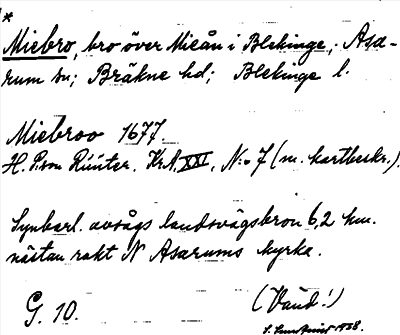 *
Miebro, bro över Mieån i Blekinge; Asa-
rum sn; Bräkne hd; Blekinge l.
Miebroo 1677.
H. P:son Rüüter. Kr.A. XXI, N:o 7 (m. kartbeskr.).
Synbarl. avsågs landsvägsbron 6,2 km.
nästan rakt N Asarums kyrka.
G. 10.
(Vänd!)
1928.